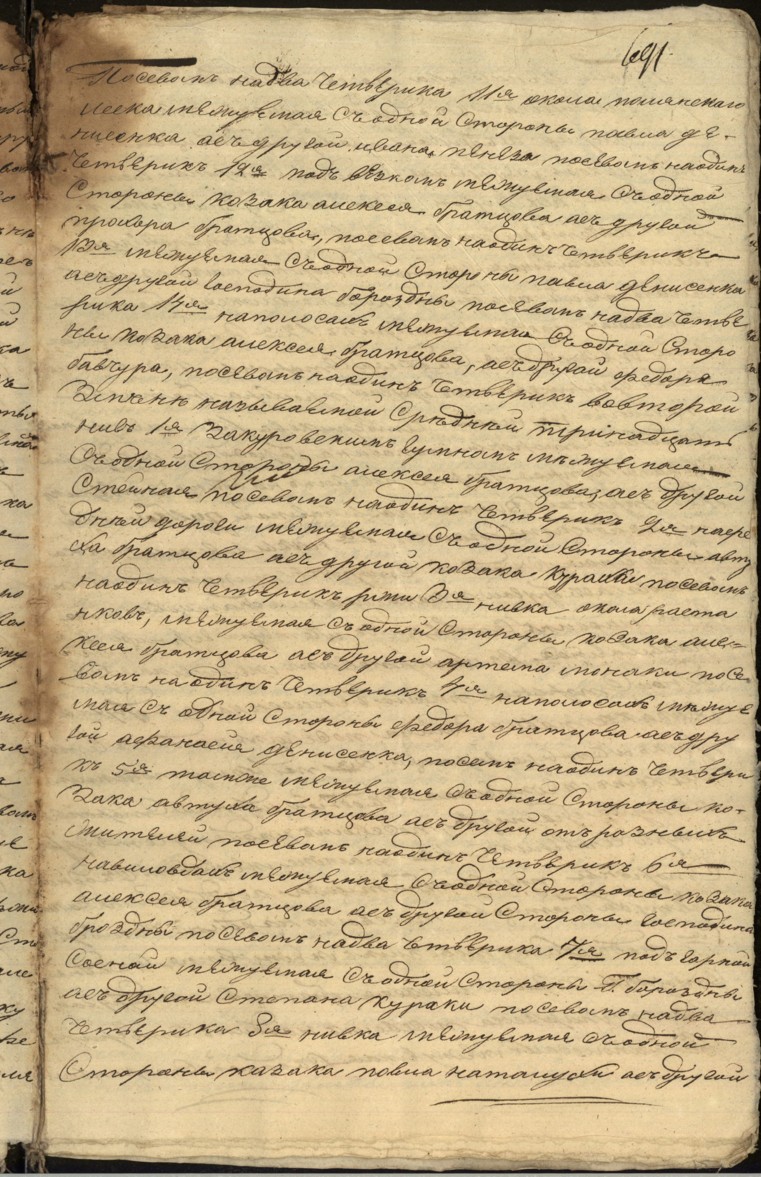 691
Посевомъ на два четверика 11я окола полянскаго
леска межуемая съ одной стороны павла де-
нисенка а съ другой ивана пенеза посевомъ на одинъ
четверикъ 12я подъ вязкомъ межуемая съ одной
стороны козака алексея братцова а съ другой
прохора братцова, посевомъ на одинъ четверикъ
13я межуемая съ одной стороны павла денисенка
а съ другой господина борозды посевомъ на два четве
рика 14я на полосахъ межуемая съ одной сторо
ны козака алексея братцова, а съ другой федора
бавчура, посевомъ на одинъ четверикъ во второй
змене называемой средней тринадцать
нивъ 1я за куровскимъ гумномъ межуемая
съ одной стороны алексея братцова, а съ другой
посевомъ на одинъ четверикъ 2я на сре
дней дороги межуемая съ одной стороны авту
ха братцова а съ другой козака кураки посевомъ
на одинъ четверикъ 3я нивка окола раста
нковъ, межуемая съ одной стороны козака але-
ксея братцова а съ другой артема монаки посе
вомъ на одинъ четверикъ 4я на полосахъ межуе
мая съ одной стороны федора братцова а съ дру
гой афанасия денисенка, посевъ на одинъ четвери
къ 5я тамже межуемая съ одной стороны ко-
зака автуха братцова а съ другой отъ розныхъ
жителей посевомъ на одинъ четверикъ 6я
межуемая съ одной стороны козака
алексея братцова а съ другой стороны господина
брозды посевомъ на два четверика 7я подъ горной
сосной межуемая съ одной стороны Г. борозды
а съ другой степана кураки посевомъ на два
четверика 8я нивка межуемая съ одной
стороны казака павла наталухи а съ другой